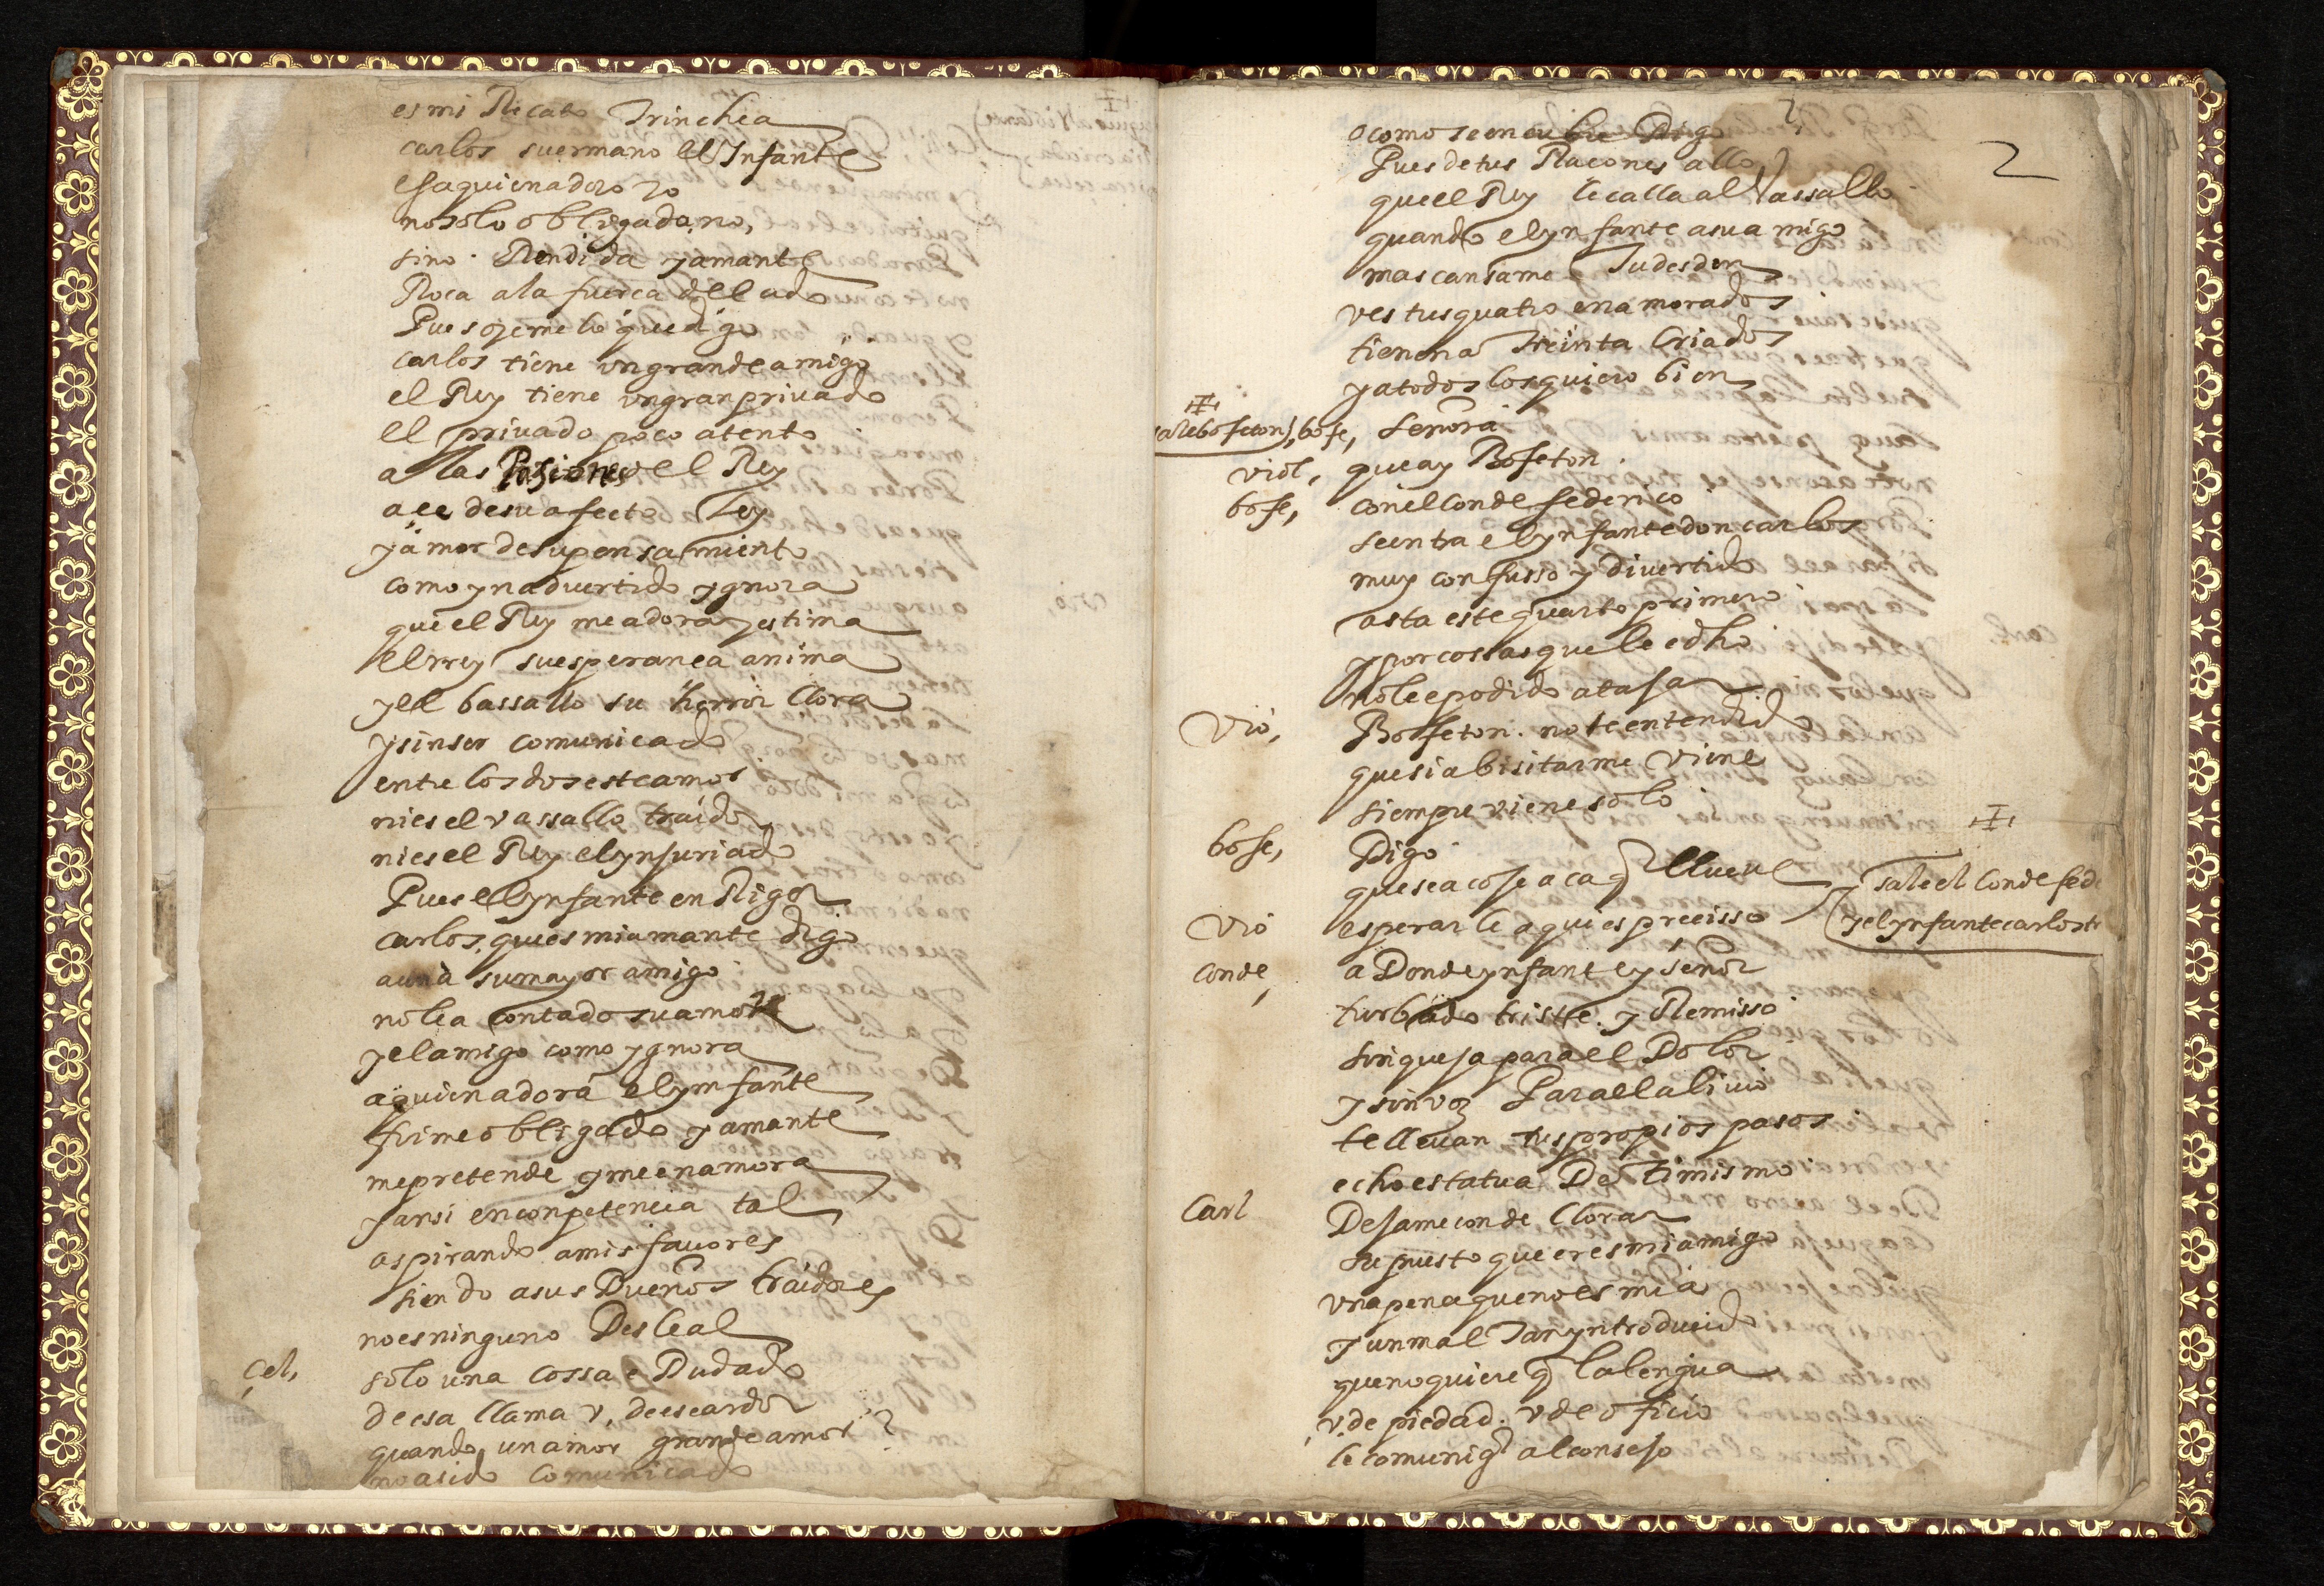 es mi Recato Trinchea
carlos su ermano el Infante
es a quien adoro yo
no solo obligada, no,
sino Rendida y amante
Roca a la fuerça del ado
Pues oyeme lo que digo
carlos tiene un grande amigo
el Rey tiene un gran privado
el privado poco atento
a las Pasiones del Rey
açe de su afecto Ley
y amor de su pensamiento
como ynadvertido ygnora
que el Rey me adora y estima
el rrey su esperança anima
y el bassallo su herror llora
y sin ser comunicado
entre los dos este amor
ni es el vassallo traidor
ni es el Rey el ynjuriado
Pues el ynfante en Rigor
carlos, que es mi amante digo
aun a su mayor amigo
no le a contado su amor
y el amigo como ygnora
a quien adora el ynfante
fime obligado y amante
me pretende y me enamora
y ansi en conpetencia tal
aspirando a mis favores
siendo a sus Dueños traidores
no es ninguno Desleal
Çel, solo una cossa e Dudado
de esa llama v, de ese ardor
quando un amor grande amor?
no a sido comunicado
2
o como se encubre Digo
Pues de tus Raçones allo
que el Rey le calla al Vassallo
quando el ynfante a su amigo
mas cansame Tu desden
ves tus quatro enamorados
tienen a treinta Criados
y a todos los quiero bien
sale bofeton, bofe, Señora
viol, que ay Bofeton
bofe, con el Conde federico
se entra el ynfante don carlos
muy confusso y divertido
asta este quarto primero
y por cossas que le e dho
no le e podido atajar
Vio, Bofeton. no te entendido
que si a bisitarme viene
siempre viene solo
bofe, Digo
que sea cose a ca q llueve
Vio esperarle aqui es preçisso
sale el Conde fede
y el ynfante carlos tr
Conde, a Donde ynfante y señor
turbado triste y Remisso
sin queja para el Dolor
y sin voz Para el alivio
te llevan tus propios pasos
echo estatua De Ti mismo
Carl Dejame conde llorar
supuesto que eres mi amigo
una pena que no es mia
y un mal Tan yntroducido
que no quiere q la lengua
v, de piedad. v de ofiçio
le comuniq al consejo